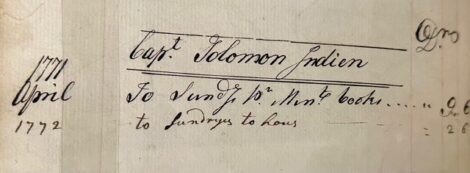 Drs
Capt Solomon Indien
1771
April To Sundy Pr Mints books .... " 9 6
1772 to Sundryes to hous = 2 6